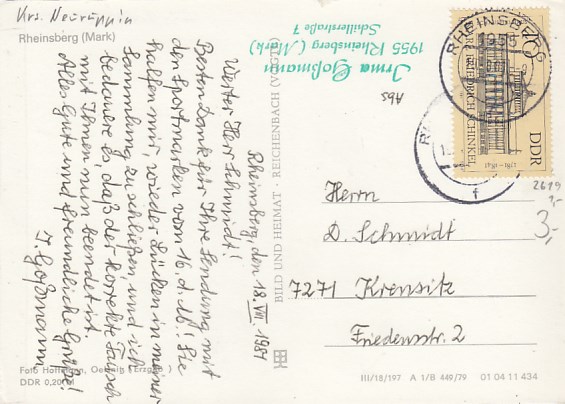 Krs. Neuruppin
Rheinsberg (Mark)
Irma Goßmann
1955 Rheinsberg (Mark)
Schillerstraße 7
Abs
Rheinsberg, den 18. VII. 1981
Werter Herr Schmidt!
Besten Dank für Ihre Sendung mit
den Sportmarken vom 16. d. M.! Sie
halfen mir, wieder Lücken in meiner
Sammlung zu schließen, und ich
bedaure es daß der korrekte Tausch
mit Ihnen nun beendet ist.
Alles Gute und freundliche Grüße!
I. Goßmann
BILD UND HEIMAT · REICHENBACH (VOGTL)
RHEINSBERG
1955
20
KARL FRIEDRICH SCHINKEL
1781-1841
DDR
f
2619
3,-
Herrn
D. Schmidt
7271 Krensitz
Friedensstr. 2
Foto Hoffmann, Oelsnitz (Erzgeb.)
DDR 0,20 M
III/18/197 A 1/B 449/79 01 04 11 434